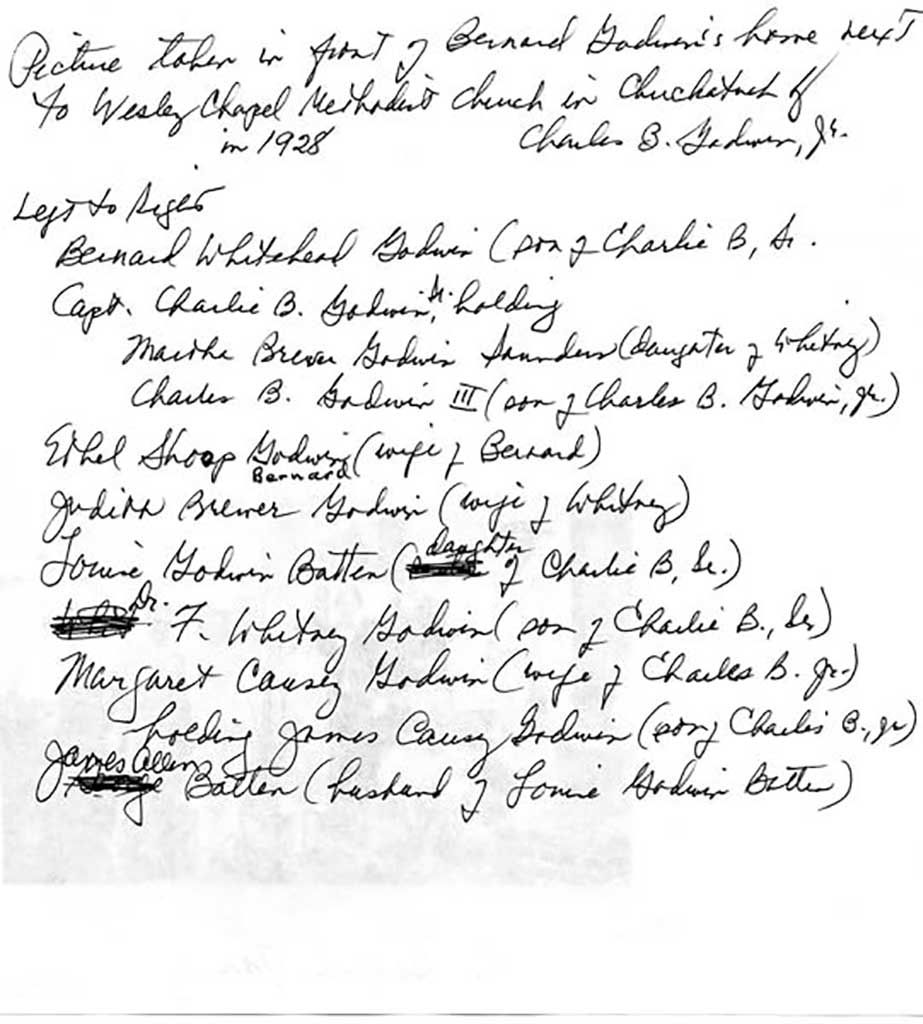 Picture taken in front of Bernard Godwin's home next
to Wesley Chapel Methodist church in Chuckatuck by
in 1928 Charles B. Godwin, Jr.
Left to Right
Bernard Whitehead Godwin (son of Charlie B, Sr.
Capt. Charlie B. Godwin, Sr. holding
Martha Brewer Godwin Saunders (daughter of Whitney)
Charles B. Godwin III (son of Charles B. Godwin, Jr.)
Ethel Shoop Godwin (wife of Bernard)
Bernard
Judith Brewer Godwin (wife of Whitney)
Louise Godwin Batten (daughter of Charlie B, Sr.)
Dr. F. Whitney Godwin (son of Charlie B., Sr)
Margaret Causey Godwin (wife of Charles B. Jr.)
holding James Causey Godwin (son of Charlie B., Jr)
James Allen
Batten (husband of Louise Godwin Batten)